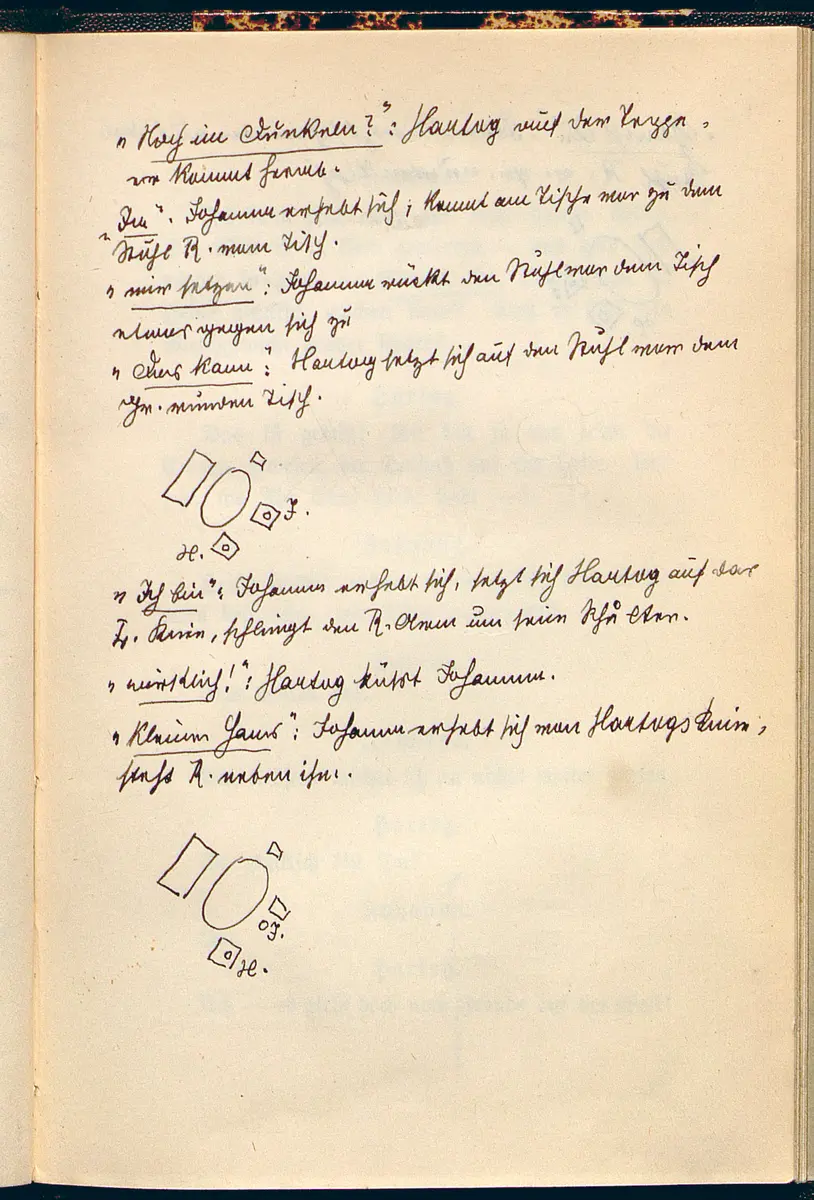 „Noch im Dunkeln?": Hartog auf der Treppe,
er kommt herab.
„Im": Johanna erhebt sich; kommt am Tische vor zu dem
Stuhl R. vom Tisch.
„wir setzen": Johanna rückt den Stuhl vor dem Tisch
etwas gegen sich zu
„Das kann": Hartog setzt sich auf den Stuhl vor dem
gr. runden Tisch.
J.
H.
„Ich bin": Johanna erhebt sich, setzt sich Hartog auf das
L. Knie, schlingt den R. Arm um seine Schulter.
„wirklich!": Hartog küsst Johanna.
„Kleiner Hans": Johanna erhebt sich von Hartogs Knie,
steht R. neben ihm.
J.
H.